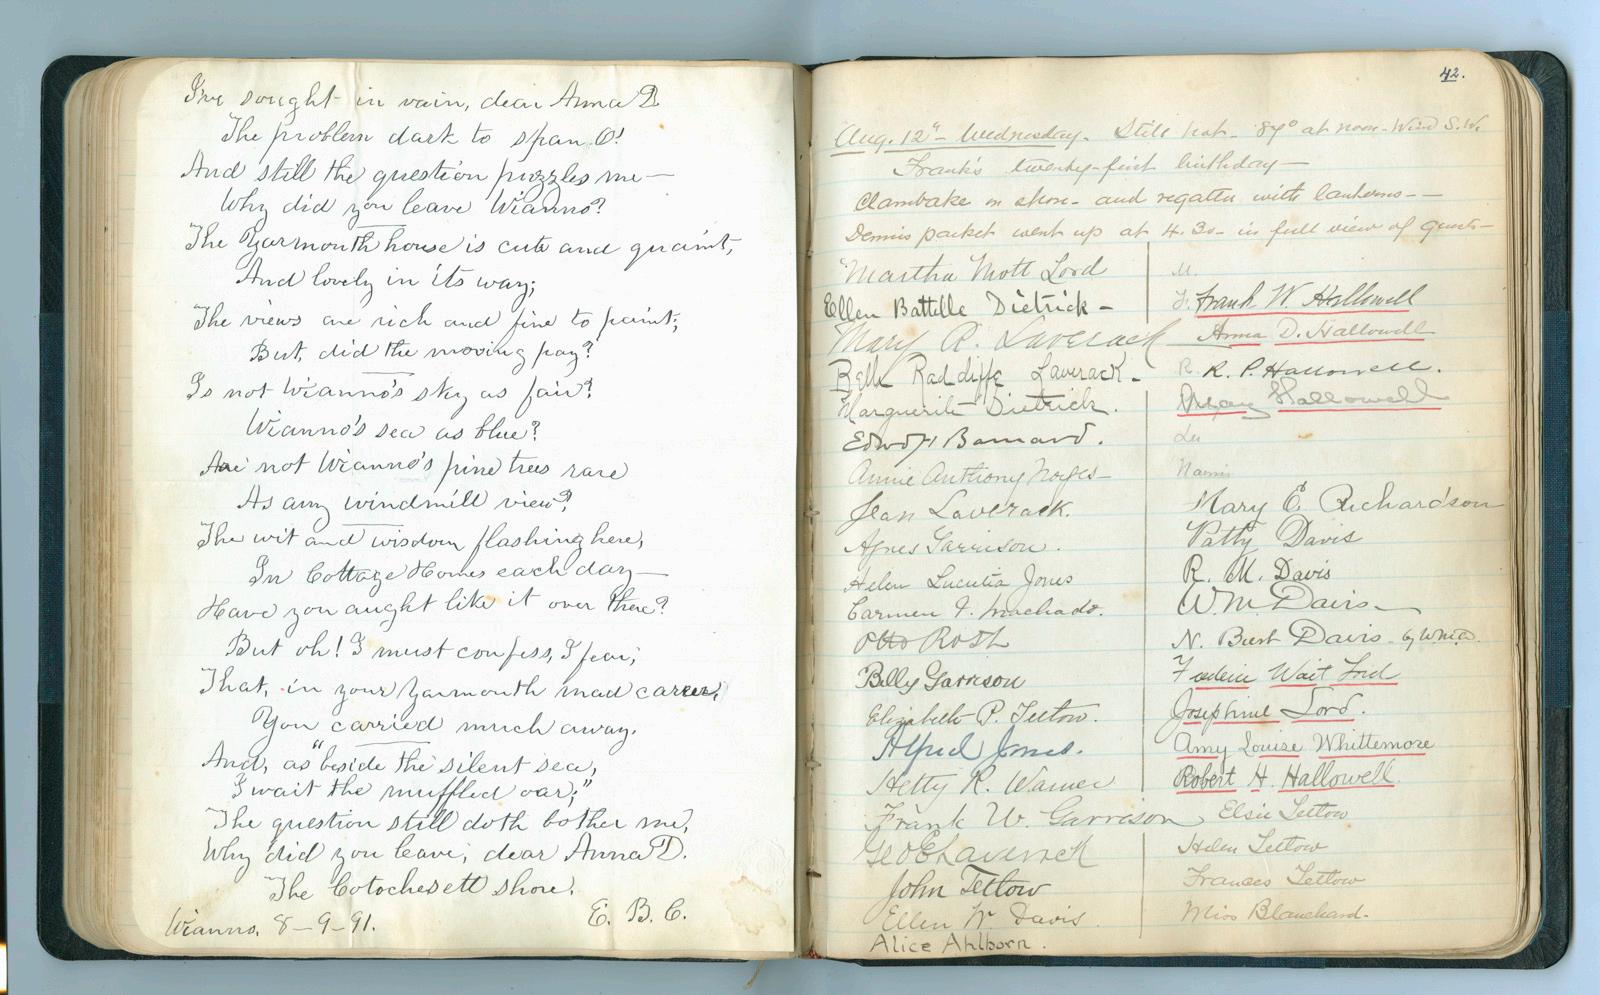 I've sought in vain, dear Anna D.
The problem dark to span O!
And still the question puzzles me—
Why did you leave Wianno?
The Yarmouth house is cute and quaint,
And lovely in its way;
The views are rich and fine to paint;
But, did the moving pay?
Is not Wianno's sky as fair?
Wianno's sea as blue?
Are not Wianno's pine trees rare
As any windmill view?
The wit and wisdom flashing here,
In Cottage Homes each day—
Have you aught like it over there?
But oh! I must confess, I fear,
That, in your Yarmouth mad career,
You carried much away.
And, as "beside the silent sea,
I wait the muffled oar;"
The question still doth bother me,
Why did you leave, dear Anna D.
The Cotochesett shore.
Wianno, 8–9–91. E. B. C.
42.
Aug. 12" – Wednesday. Still hot – 84° at noon – Wind S.W.
Frank's twenty-first birthday—
Clambake on shore – and regatta with lanterns—
Dennis packet went up at 4.30 – in full view of guests—
Martha Mott Lord
Ellen Battelle Dietrick –
Mary R. Laverack
Belle Radcliffe Laverack –
Marguerite Dietrick.
Barnard.
Annie Anthony Noyes–
Jean Laverack.
Agnes Garrison.
Helen Lucretia Jones
Carmen F. Machado.
Otto Roth
Billy Garrison
Elizabeth P. Tetlow.
Alfred Jones.
Hetty R. Warner
Frank W. Garrison
Geo E Laverack
John Tetlow
Ellen W. Davis
Alice Ahlborn.
M.
F. Frank W. Hallowell
Anna D. Hallowell
R. R. P. Hallowell.
Hallowell
Mary E. Richardson
Patty Davis
R. M. Davis
W M Davis
N. Burt Davis – by WMD.
Frederic Wait Lord
Josephine Lord.
Amy Louise Whittemore
Robert H. Hallowell
Elsie Tetlow
Helen Tetlow
Frances Tetlow
Miss Blanchard.